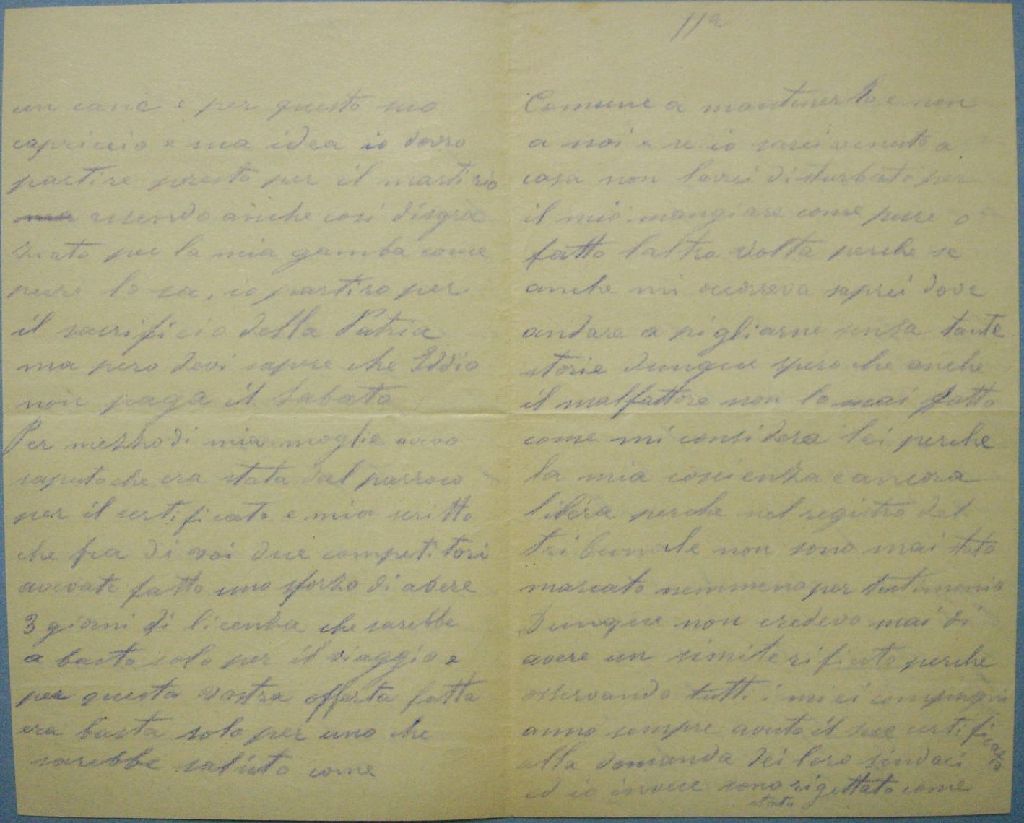 un cane e per questo suo
capriccio e sua idea io dovro
partire presto per il martirio
essendo anche cosi disgra
ziato per la mia gamba come
pure lo sa, io partiro per
il sacrificio della Patria
ma pero devi sapere che Iddio
non paga il Sabato
Per mezzo di mia moglie avevo
saputo che era stata dal parroco
per il certificato e mia scritto
che fra di voi due competitori
avevate fatto uno sforzo di avere
3 giorni di licenza che sarebbe
a basta solo per il viaggio e
per questa vostra offerta fatta
era basta solo per uno che
sarebbe saluto come
112
Comune a mantenerlo e non
a noi e se io sarei venuto a
casa non lavrei disturbato per
il mio mangiare come pure o
fatto laltra volta perche se
anche mi occorreva saprei dove
andare a pigliarne senza tante
storie dunque spero che anche
il malfattore non lo mai fatto
come mi considera lei perche
la mia coscienza e ancora
libera perche nel registro del
tribunale non sono mai stato
marcato nemmeno per testimonio
Dunque non credevo mai di
avere un simile rifiuto perche
osservando tutti i miei compagni
anno sempre avuto il suo certificato
alla domanda dei loro sindaci
ed io invece sono stato rigettato come